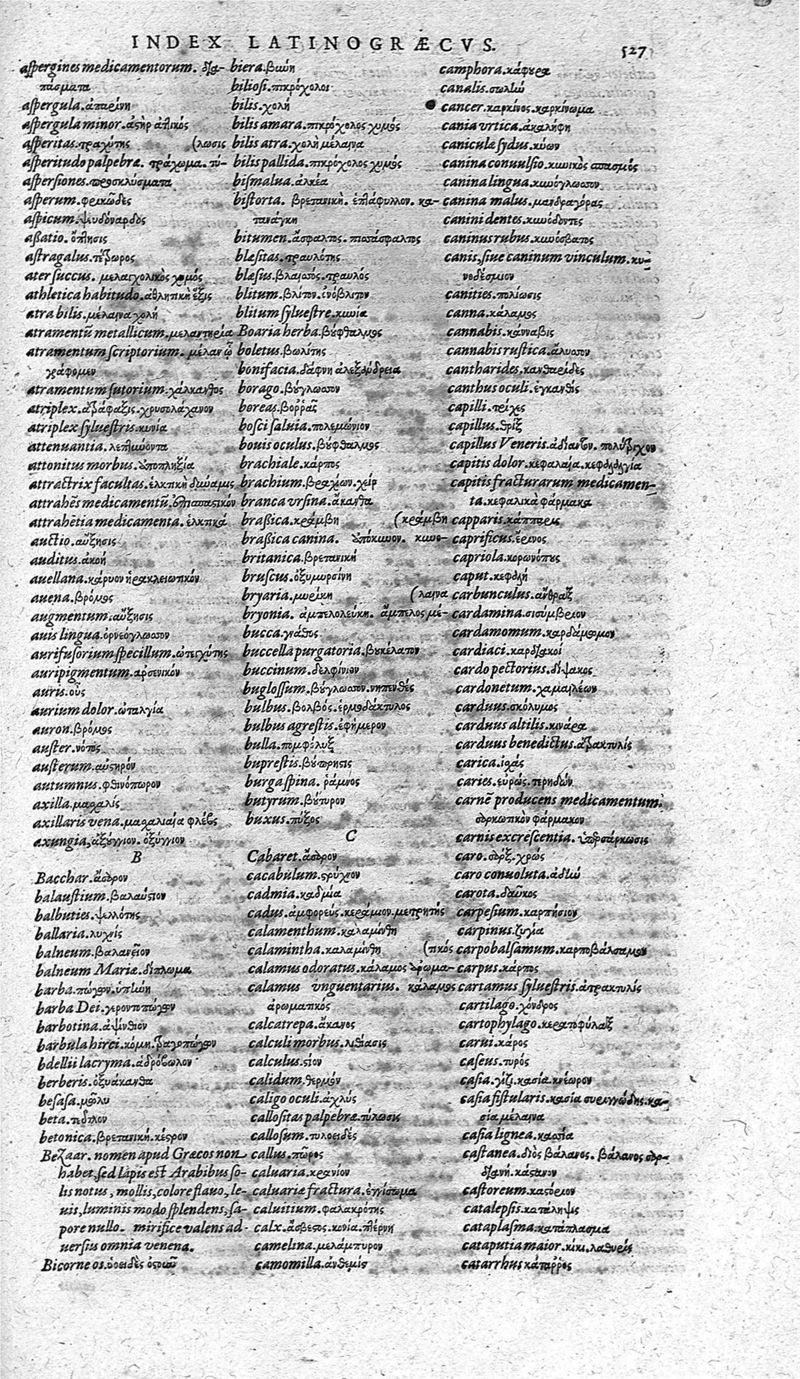 INDEX LATINOGRÆCVS. 527
aspergines medicamentorum. δια-
πάσματα
aspergula. ἀπαρίνη
aspergula minor. ἀστὴρ ἀττικός
asperitas. τραχύτης (λωσις
asperitudo palpebræ. τράχωμα. τύ-
aspersiones. προσκλύσματα
asperum. φρικῶδες
aspicum. ψευδόναρδος
assatio. ὄπτησις
astragalus. τέτρωρος
ater succus. μελαγχολικὸς χυμός
athletica habitudo. ἀθλητικὴ ἕξις
atra bilis. μέλαινα χολή
atramentū metallicum. μελαντηρία
atramentum scriptorium. μέλαν ᾧ
γράφομεν
atramentum sutorium. χάλκανθος
atriplex. ἀτράφαξις. χρυσολάχανον
atriplex syluestris. κινία
attenuantia. λεπτύνοντα
attonitus morbus. ὑποπληξία
attractrix facultas. ἑλκτικὴ δύναμις
attrahēs medicamentū. ἐπισπαστικόν
attrahētia medicamenta. ἑλκτικά
auctio. αὔξησις
auditus. ἀκοή
auellana. κάρυον ἡρακλειωτικόν
auena. βρόμος
augmentum. αὔξησις
auis lingua. ὀρνεόγλωσσον
aurifusorium specillum. ὠτεγχύτης
auripigmentum. ἀρσενικόν
auris. οὖς
aurium dolor. ὠταλγία
auron. βρόμος
auster. νότος
austerum. αὐστηρόν
autumnus. φθινόπωρον
axilla. μασχαλίς
axillaris vena. μασχαλιαία φλέβς
axungia, ἀξύγγιον. ὀξύγγιον
B
Bacchar. ἄσαρον
balaustium. βαλαύστιον
balbuties. ψελλότης
ballaria. λυχνίς
balneum. βαλανεῖον
balneum Mariæ. δίπλωμα
barba. πώγων. ὑπήνη
barba Dei. γεροντοπώγων
barbotina. ἀψίνθιον
barbula hirci. κόμη. τραγοπώγων
bdellii lacryma. ἀδρόβωλον
berberis. ὀξυάκανθα
besasa. μῶλυ
beta. τεῦτλον
betonica. βρετανική. κέστρον
Bezaar. nomen apud Græcos non
habet. sed lapis est Arabibus so-
lis notus, mollis, colore flauo, le-
uis, luminis modo splendens, sa-
pore nullo. mirifice valens ad-
uersius omnia venena.
Bicorne os. ὑοειδὲς ὀστοῦν
biera. βιώνη
biliosi. πικρόχολοι
bilis. χολή
bilis amara. πικρόχολος χυμός
bilis atra. χολὴ μέλαινα
bilis pallida. πικρόχολος χυμός
bismalua. ἀλκέα
bistorta. βρετανική. ἑπτάφυλλον. κα-
τανάγκη
bitumen. ἄσφαλτος. πισσάσφαλτος
blæsitas. τραυλότης
blæsus. βλαισός. τραυλός
blitum. βλίτον. ἀνόβλιτον
blitum syluestre. κωνία
Boaria herba. βούφθαλμος
boletus. βωλίτης
bonifacia. δάφνη ἀλεξάνδρεια
borago. βούγλωσσον
boreas. βορρᾶς
bosci saluia. πολεμώνιον
bouis oculus. βούφθαλμος
brachiale. καρπός
brachium. βραχίων. χείρ
branca vrsina. ἄκανθα
brassica. κράμβη (κράμβη
brassica canina. ὑπόκυνον. κυνο-
britanica. βρετανική
bruscus. ὀξυμυρσίνη
bryaria. μυρίκη (λαινα
bryonia. ἀμπελολεύκη. ἄμπελος μέ-
bucca. γνάθος
buccella purgatoria. βουκέλατον
buccinum. δελφίνιον
buglossum. βούγλωσσον. νηπενθές
bulbus. βολβός. ἑρμοδάκτυλος
bulbus agrestis. ἐφήμερον
bulla. πομφόλυξ
buprestis. βούπρηστις
burgaspina. ῥάμνος
butyrum. βούτυρον
buxus. πύξος
C
Cabaret. ἄσαρον
cacabulum. στρύχνον
cadmia. καδμία
cadus. ἀμφορεύς. κεράμιον. μετρητής
calamenthum. καλαμίνθη
calamintha. καλαμίνθη (τικός
calamus odoratus. κάλαμος ἀρωμα-
calamus vnguentarius. κάλαμος
ἀρωματικός
calcatrepa. ἄκανος
calculi morbus. λιθίασις
calculus. στίον
calidum. θερμόν
caligo oculi. ἀχλύς
callositas palpebræ. τύλωσις
callosum. τυλοειδές
callus. πῶρος
caluaria. κρανίον
caluariæ fractura. ἐγγίσωμα
caluitium. φαλακρότης
calx. ἄσβεστος. κονία. πλέρνη
camelina. μελάμπυρον
camomilla. ἀνθεμίς
camphora. κάφουρα
canalis. σωλήν
cancer. καρκίνος. καρκίνωμα
cania vrtica. ἀκαλήφη
caniculæ sydus. κύων
canina conuulsio. κυνικὸς σπασμός
canina lingua. κυνόγλωσσον
canina malus. μανδραγόρας
canini dentes. κυνόδοντες
caninus rubus. κυνόσβατος
canis, siue caninum vinculum. κυ-
νοδέσμιον
canities. πολίωσις
canna. κάλαμος
cannabis. κάνναβις
cannabis rustica. ἄλυσσον
cantharides. κανθαρίδες
canthus oculi. ἐγκανθίς
capilli. τρίχες
capillus. θρίξ
capillus Veneris. ἀδίαντον. πολύτριχον
capitis dolor. κεφαλαία. κεφαλαλγία
capitis fracturarum medicamen-
ta. κεφαλικὰ φάρμακα
capparis. κάππαρις
caprificus. ἐρινος
capriola. κορωνόπους
caput. κεφαλή
carbunculus. ἄνθραξ
cardamina. σισύμβριον
cardamomum. καρδάμωμον
cardiaci. καρδιακοί
cardo pectorius. δίψακος
cardonetum. χαμαιλέων
carduus. σκόλυμος
carduus altilis. κινάρα
carduus benedictus. ἀτρακτυλίς
carica. ἰσχάς
caries. εὐρώς. τερηδών
carnē producens medicamentum.
σαρκωτικὸν φάρμακον
carnis excrescentia. ὑπερσάρκωσις
caro. σάρξ. χρώς
caro conuoluta. ἀδήν
carota. δαῦκος
carpesium. καρπήσιον
carpinus. ζυγία
carpobalsamum. καρποβάλσαμον
carpus. κάρπος
cartamus syluestris. ἀτρακτυλίς
cartilago. χόνδρος
cartophylago. κερατοφύλαξ
carui. κάρος
caseus. τυρός
casia. γίζι. κασία. κνέωρον
casia fistularis. κασία συριγγώδης. κα-
σία μέλαινα
casia lignea. κασσία
castanea. διὸς βάλανος. βάλανος σαρ-
διανή. κάστανον
castoreum. καστόριον
catalepsis. κατάληψις
cataplasma. κατάπλασμα
cataputia maior. κίκι. λαθυρίς
catarrhus κατάρρος